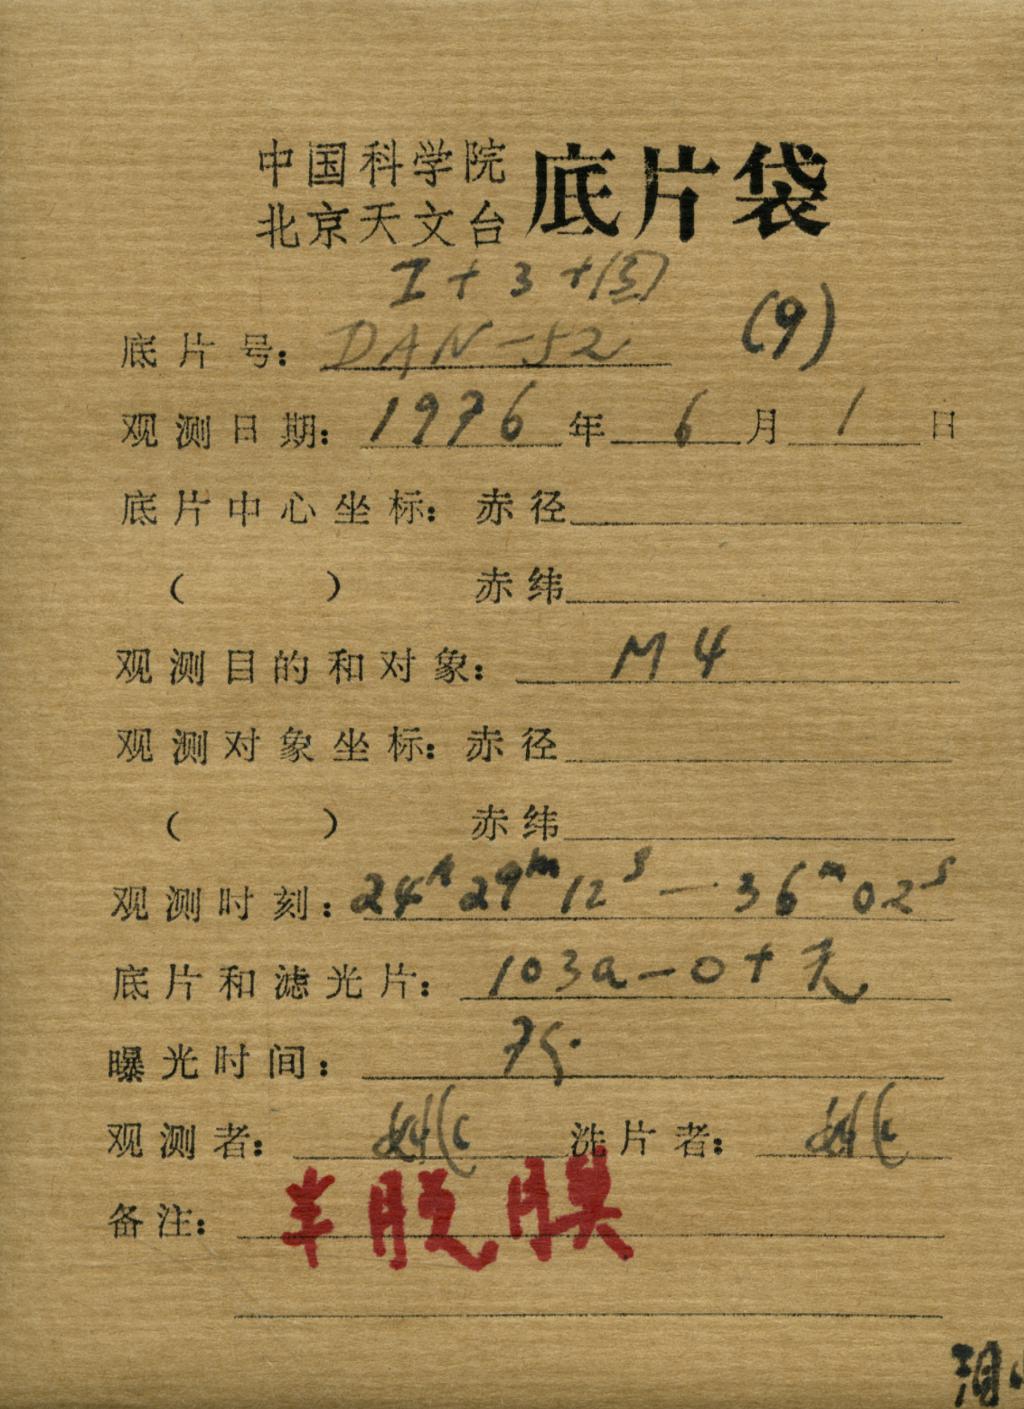 中国科学院
北京天文台 底片袋
I + 3 +
底片号： DAN-52 (9)
观测日期： 1976 年 6 月 1 日
底片中心坐标： 赤径
（ ） 赤纬
观测目的和对象： M4
观测对象坐标： 赤径
（ ） 赤纬
观测时刻： 24h 29m 12s — 36m 02s
底片和滤光片： 103a-O + 无
曝光时间：
观测者： 姚 洗片者： 姚
备注： 脱膜